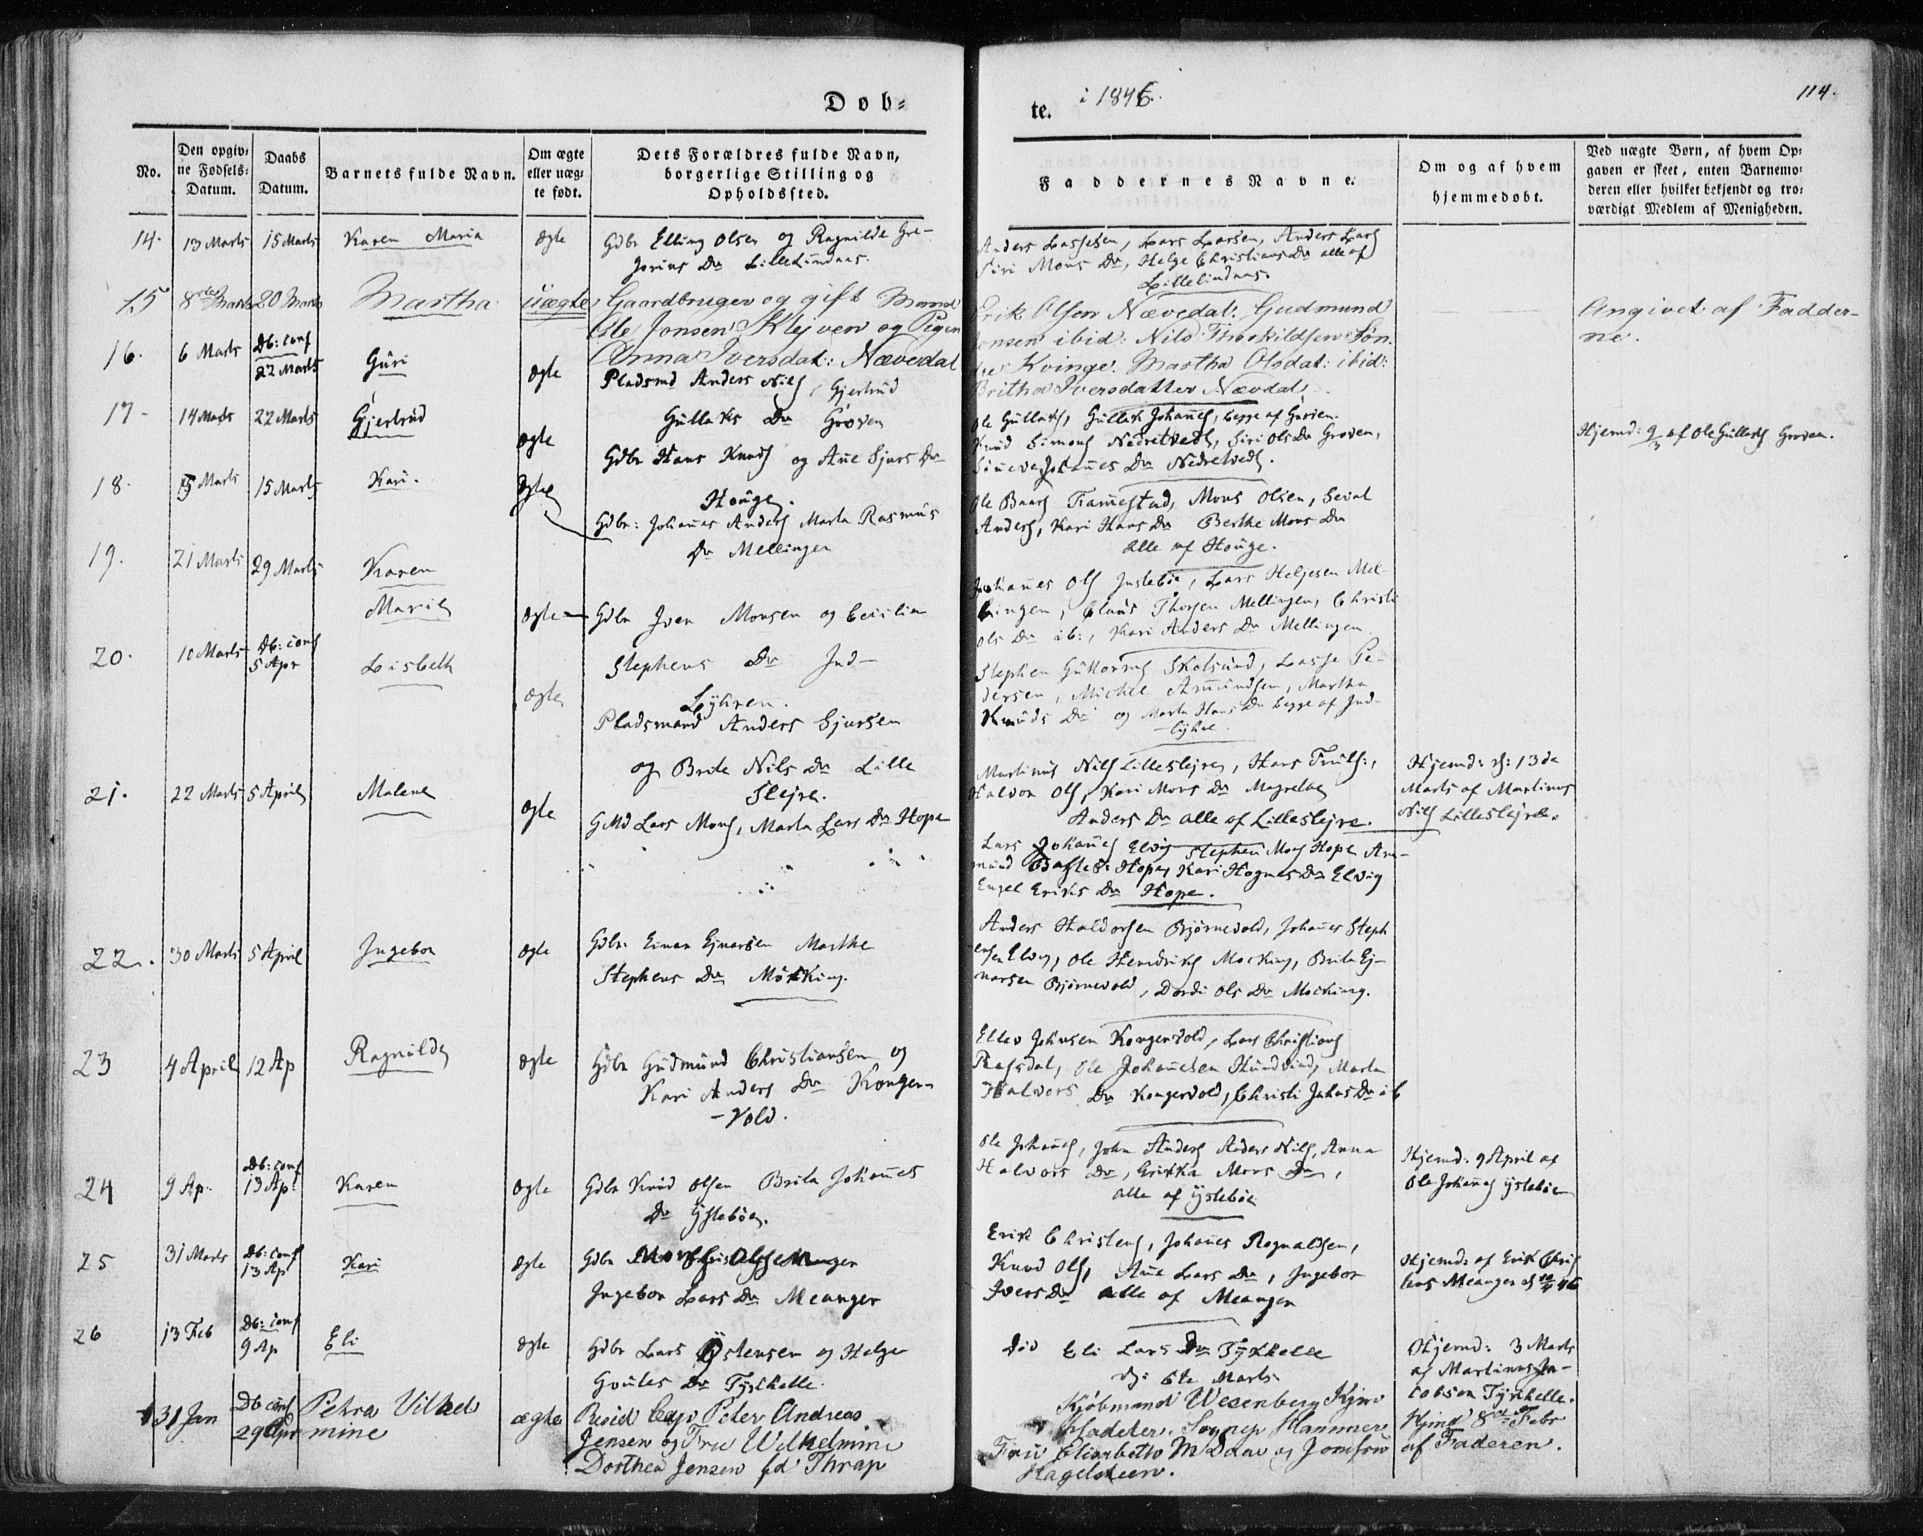 Døb=
No.
Den opgiv=
ne Fødsels=
Datum.
Daabs
Datum.
Barnets fulde Navn.
Om ægte
eller uæg=
te født.
Dets Forældres fulde Navn,
borgerlige Stilling og
Opholdssted.
14. 13 Marts 15 Marts Karen Maria ægte Gdbr Elling Olsen og Ragnilde Gre-
Jorius Dr Lille Lindaas.
15 8de Marts 20 Marts Martha uægte Gaardbruger og gift Mand
Ole Jonsen Klejven og Pigen
Anna Iversdat: Nævedal
16. 6 Marts Db: conf
22 Marts Guri ægte Pladsmd Anders Nils, Gjertrud
Gullaks Dr Groven
17- 14 Marts 22 Marts Gjertrud ægte Gdbr Hans Knuds og Ane Sjurs Dr
Houge.
18. 15 Marts Kari. ægte Gdbr: Johannes Anders Marta Rasmus
Dr Mellingen
19. 21 Marts 29 Marts Karen
Marie ægte Gdbr Iver Monsen og Cecilia
Stephens Dr Ind-
Lyhren.
20. 10 Marts Db: conf
5 Apr Lisbeth ægte Pladsmand Anders Sjursen
og Brite Nils Dr Lille
Slejre.
21. 22 Marts 5 April Malene ægte GMd Lars Mons, Marta Lars Dr Hope
22. 30 Marts 5 April Ingebor ægte Gdbr Einar Ejnarsen Marthe
Stephens Dr Mocking.
23 4 April 12 Ap Ragnilde ægte Gdbr Gudmund Christiansen og
Kari Anders Dr Konger-
-vold.
24 9 Ap. Db: conf
13 Ap: Karen ægte Gdbr Knud Olsen Brita Johannes
Dr Ystebøen.
25 31 Marts Db: conf
13 Ap Kari ægte Gdbr Mons Meanger
Ingebor Lars Dr Meanger
26 13 Feb Db: conf
9 Ap Eli ægte Gdbr Lars Ystensen og Helge
Goutes Dr Tyskhelle.
31 Jan Db conf
29 Apr Petra Vilhel-
mine ægte Resid Cap Peter Andreas
Jensen og Frue Wilhelmine
Dorthea Jensen fd Thrap
te. i 1846. 114.
Faddernes Navne.
Om og af hvem
hjemmedøbt.
Ved uægte Børn, af hvem Op=
gaven er skeet, enten Barnemo=
deren eller hvilket bekjendt og tro=
værdigt Medlem af Menigheden.
Anders Lassesen, Lars Larsen, Anders Lars
Siri Mons Dr, Helge Christians Dr alle af
Lillelindaas.
Erik Olsen Nævedal. Gudmund
Jonsen ibid: Nils Thorkildsen Søn-
Kvinge. Martha Olsdat: ibid:
Britha Iversdatter Nævdal,
Angivet af Fadder-
ne.
Ole Gullachs, Gullach Johannes, begge af Groven.
Knud Simons Nedretvedt, Siri Ols Dr Groven,
Johannes Dr Nedretvedt.
Hjemd: 9/3 af Ole Gullachs Groven.
Ole Baars Frammestad, Mons Olsen, Seval
Anders, Kari Hans Dr Berthe Mons Dr
alle af Houge.
Johannes Ols Instebøe, Lars Heljesen Mel-
lingen, Claus Thorsen Mellingen, Christi
Ols Dr ib:, Kari Anders Dr Mellingen
Stephen Guttorms Skotsund, Lasse Pe-
dersen, Michel Amundsen, Martha
Knuds Dr og Marta Hans Dr begge af Ind-
-lyhre.
Martinus Nils Lilleslejre, Hans Truls:,
Halvor Ols, Kari Mons Dr Magrethe
Anders Dr alle af Lilleslejre.
Hjemd: d: 13de
Marts af Martinus
Nils Lilleslejre.
Lars Johannes Elvig Stephen Mons Hope Am-
mund Hope, Kari Hognes Dr Elvig
Engel Eriks Dr Hope.
Anders Haldorsen Bjørnevold, Johannes Steph
ensen Elvig, Ole Hendriks Mocking, Brita Ej-
narsen Bjørnevold, Dordi Ols Dr Mocking.
Ellev Johnsen Kongervold, Lars Christians
Ragsdal, Ole Johannesen Hundvind, Marta
Halvors Dr Kongervold, Christi Johns Dr ib
Ole Johannes, John Anders Anders Nils, Anna
Halvors Dr, Erikka Mons Dr,
alle af Ystebøe
Hjemd: 9 April af
Ole Johannes Ystebøe
Erik Christens, Johannes Rognaldsen,
Knud Ols, Ane Lars Dr, Ingebor
Ivers Dr alle af Meanger
Hjemd: af Erik Chris
tens Meanger
Død Eli Lars Dr Tyskhelle
d: 6te Marts
Hjemd: 3 Marts
af Martinus Ja-
cobsen Tyskhelle.
Kjøbmand Wesenberg Kjøm
Fladeter. Sognep Hammer
Frue Elisabeth M Daae og Jomfru
Hagelsteen.
Hjmd 8de Febr
af Faderen.